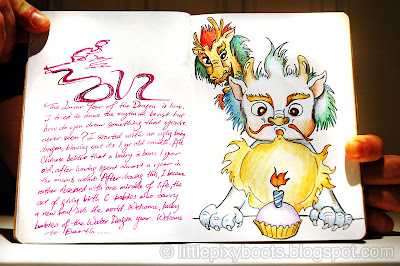 2012
The Lunar Year of the Dragon is here.
I tried to draw this mythical beast but
how do you draw something that you've
never seen? I started with an ugly baby
dragon, blowing out its 1 yr old candle. All
Chinese believe that a baby is born 1 year
old, after having spent almost a year in
the mum's womb. After doing this, I became
rather teased with one miracle of life, the
act of giving birth & babies who carry
a new hope into the world. Welcome, baby
babies of the Water Dragon year. Welcome
to Earth....
© littlepixyboots.blogspot.com